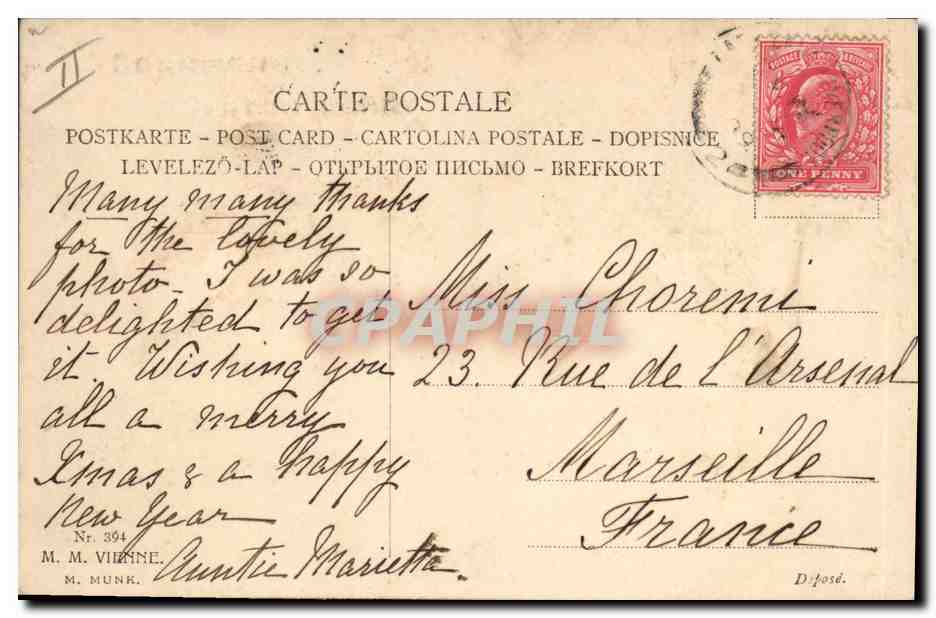 II
CARTE POSTALE
POSTKARTE – POST CARD – CARTOLINA POSTALE – DOPISNICE
LEVELEZŐ-LAP – ОТКРЫТОЕ ПИСЬМО – BREFKORT
POSTAGE REVENUE
ONE PENNY
Many many thanks
for the lovely
photo – I was so
delighted to get
it. Wishing you
all a merry
Xmas & a happy
New Year
Auntie Marietta.
Miss Choremi
23. Rue de l'Arsenal
Marseille
France
Nr. 394
M. M. VIENNE.
M. MUNK.
Déposé.
CPAPHIL